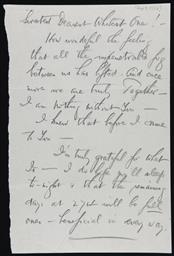 Sweetest Dearest Wholest One! –
How wonderful the feeling
that all the impenetrable fog
between us has lifted – And once
more we are truly Together –
I am Nothing without You –
I knew that before I came
to You –
I'm truly grateful for what
Is – I do hope you'll sleep
to-night & that the remaining
days at Wight will be full
ones – beneficial in every way